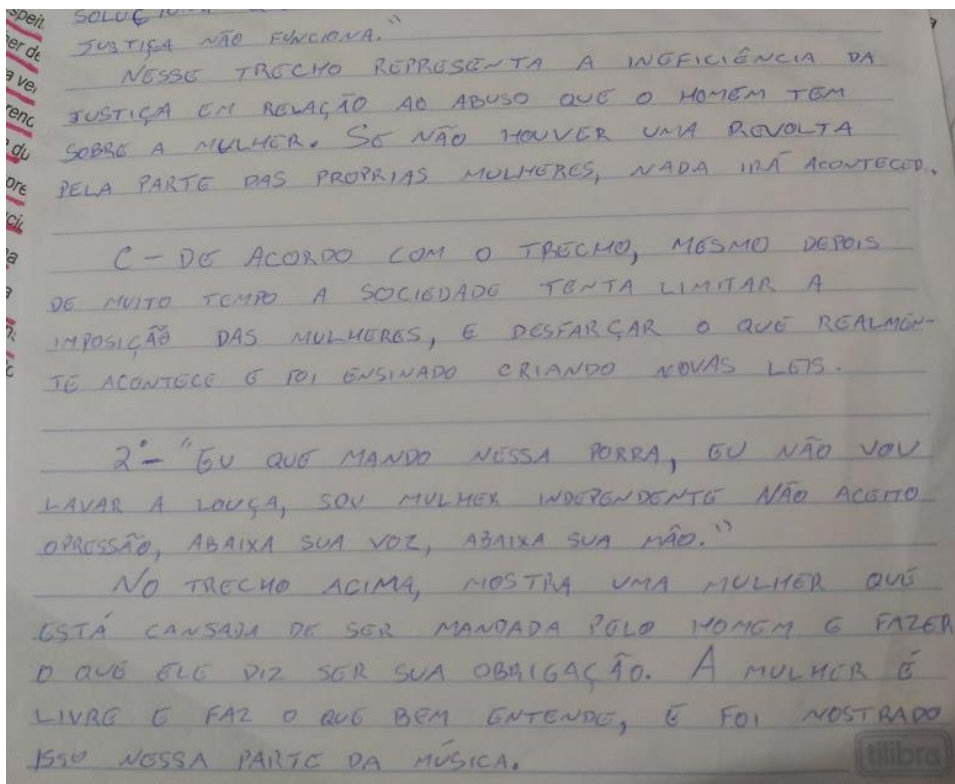 speit
SOLUÇ
er de
JUSTIÇA NÃO FUNCIONA."
a ve
NESSE TRECHO REPRESENTA A INEFICIÊNCIA DA
renc
JUSTIÇA EM RELAÇÃO AO ABUSO QUE O HOMEM TEM
du
SOBRE A MULHER. SE NÃO HOUVER UMA REVOLTA
ore
PELA PARTE DAS PROPRIAS MULHERES, NADA IRÁ ACONTECER.
C - DE ACORDO COM O TRECHO, MESMO DEPOIS
DE MUITO TEMPO A SOCIEDADE TENTA LIMITAR A
IMPOSIÇÃO DAS MULHERES, E DESFARÇAR O QUE REALMEN-
TE ACONTECE E FOI ENSINADO CRIANDO NOVAS LEIS.
2° - "EU QUE MANDO NESSA PORRA, EU NÃO VOU
LAVAR A LOUÇA, SOU MULHER INDEPENDENTE NÃO ACEITO
OPRESSÃO, ABAIXA SUA VOZ, ABAIXA SUA MÃO."
NO TRECHO ACIMA, MOSTRA UMA MULHER QUE
ESTÁ CANSADA DE SER MANDADA PELO HOMEM E FAZER
O QUE ELE DIZ SER SUA OBRIGAÇÃO. A MULHER É
LIVRE E FAZ O QUE BEM ENTENDE, E FOI MOSTRADO
ISSO NESSA PARTE DA MÚSICA.
tilibra